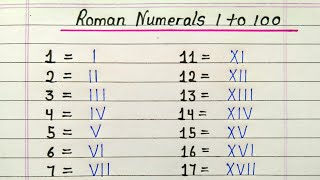 Roman Numerals 1 to 100
1 = I 11 = XI
2 = II 12 = XII
3 = III 13 = XIII
4 = IV 14 = XIV
5 = V 15 = XV
6 = VI 16 = XVI
7 = VII 17 = XVII